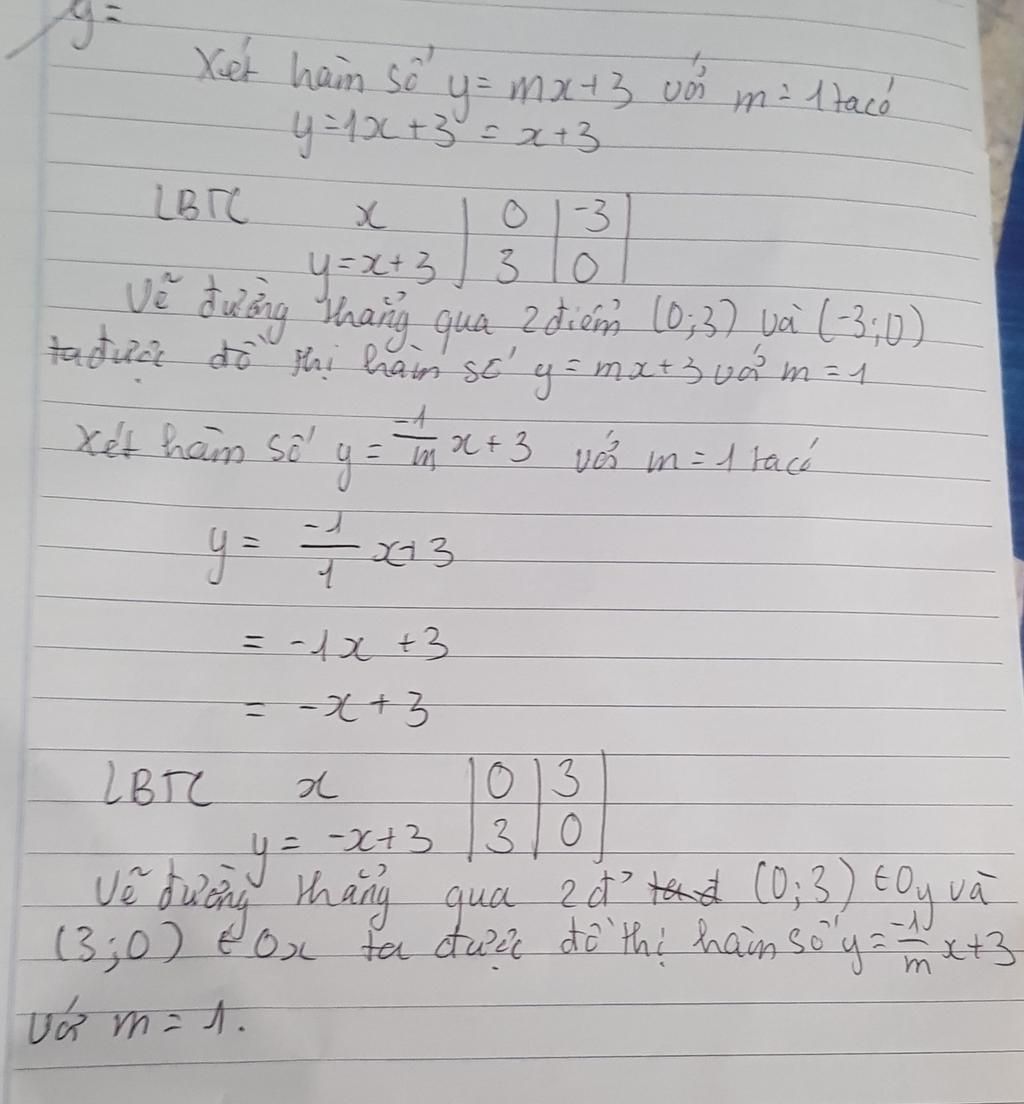 y=
Xét hàm số y=mx+3 với m=1 ta có
y=1x+3=x+3
LBTC x | 0 | -3 |
y=x+3 | 3 | 0 |
Vẽ đường thẳng qua 2 điểm (0;3) và (-3;0)
ta được đồ thị hàm số y=mx+3 với m=1
Xét hàm số y=\frac{-1}{m}x+3 với m=1 ta có
y=\frac{-1}{1}x+3
=-1x+3
=-x+3
LBTC x | 0 | 3 |
y=-x+3 | 3 | 0 |
Vẽ đường thẳng qua 2 đ' (0;3) ∈Oy và
(3;0) ∈ Ox ta được đồ thị hàm số y=\frac{-1}{m}x+3
với m=1.